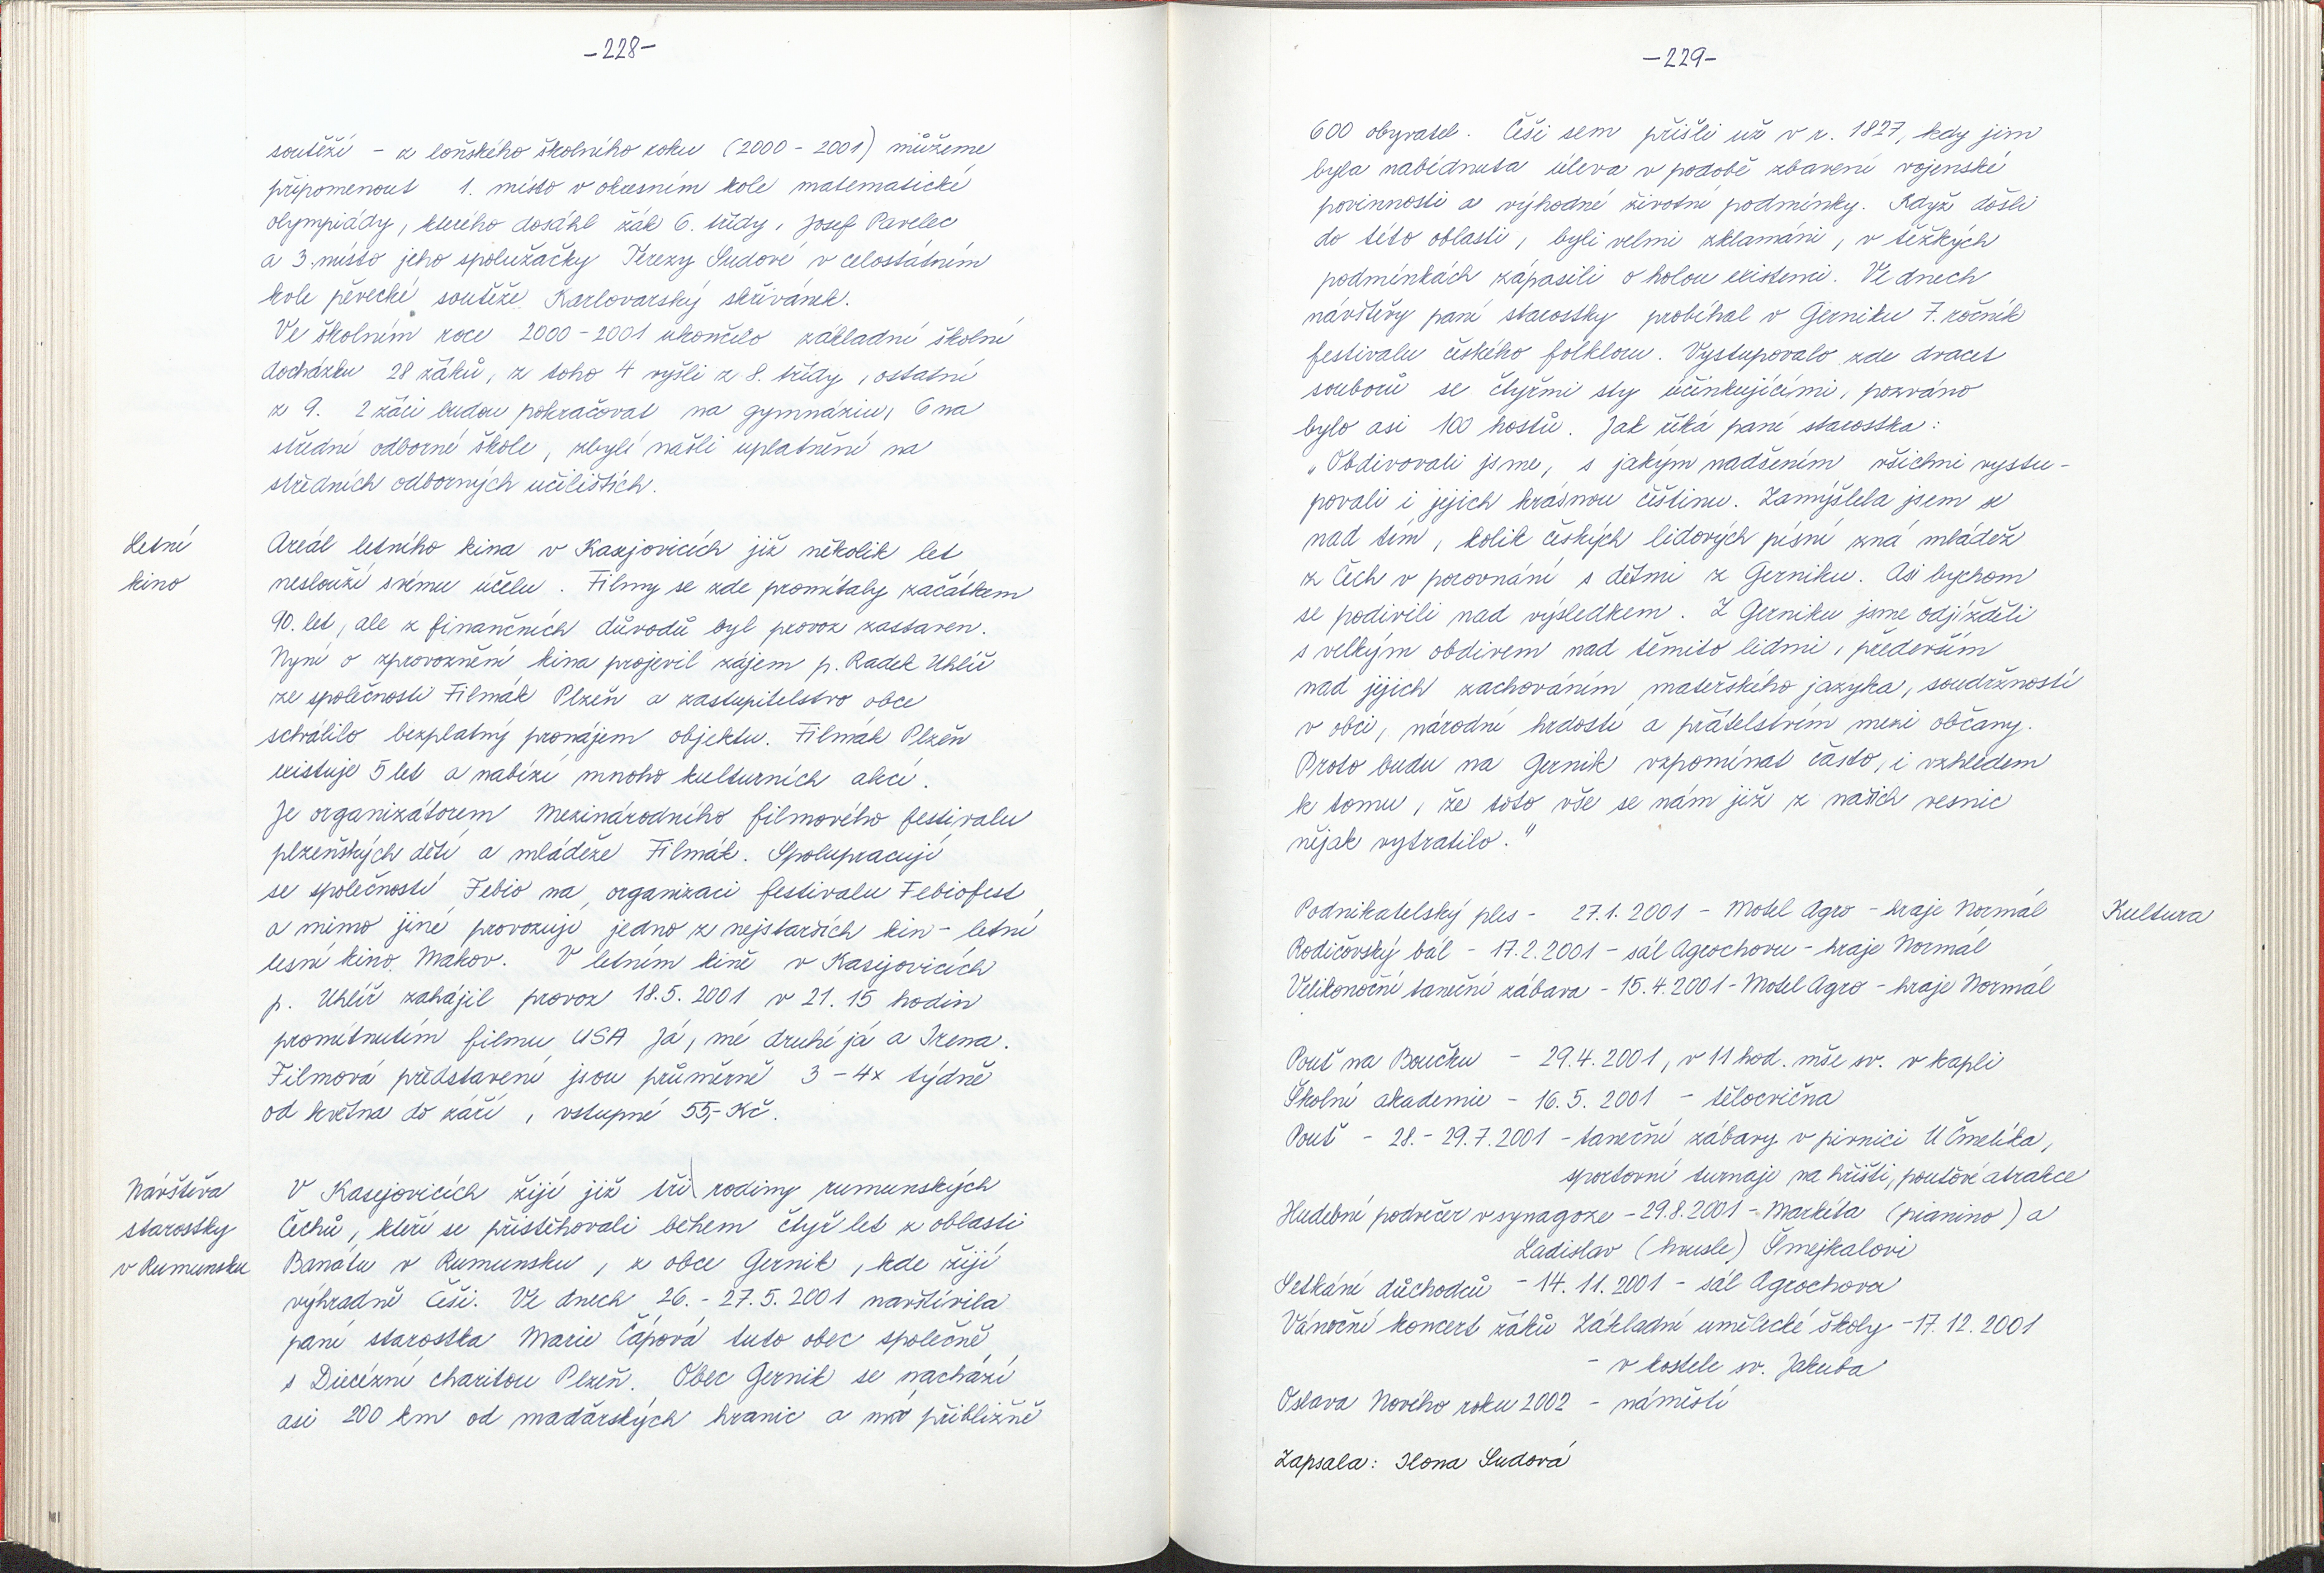 -228-
soutěží - z loňského školního roku (2000 - 2001) můžeme
připomenout 1. místo v okresním kole matematické
olympiády, kterého dosáhl žák 6. třídy, Josef Pavelec
a 3. místo jeho spolužačky Terezy Sudové v celostátním
kole pěvecké soutěže Karlovarský skřivánek.
Ve školním roce 2000 - 2001 ukončilo základní školní
docházku 28 žáků, z toho 4 vyšli z 8. třídy, ostatní
z 9. 2 žáci budou pokračovat na gymnáziu, 6 na
střední odborné škole, zbylí našli uplatnění na
středních odborných učilištích.
Letní
kino
Areál letního kina v Kasejovicích již několik let
neslouží svému účelu. Filmy se zde promítaly začátkem
90. let, ale z finančních důvodů byl provoz zastaven.
Nyní o zprovoznění kina projevil zájem p. Radek Uhlíř
ze společnosti Filmák Plzeň a zastupitelstvo obce
schválilo bezplatný pronájem objektu. Filmák Plzeň
existuje 5 let a nabízí mnoho kulturních akcí.
Je organizátorem Mezinárodního filmového festivalu
plzeňských dětí a mládeže Filmák. Spolupracují
se společností Febio na organizaci festivalu Febiofest
a mimo jiné provozují jedno z nejstarších kin - letní
lesní kino Makov. V letním kině v Kasejovicích
p. Uhlíř zahájil provoz 18.5. 2001 v 21.15 hodin
promítnutím filmu USA Já, mé druhé já a Irena.
Filmová představení jsou průměrně 3 - 4x týdně
od května do září, vstupné 55,- Kč.
Návštěva
starostky
v Rumunsku
V Kasejovicích žijí již tři rodiny rumunských
Čechů, kteří se přistěhovali během čtyř let z oblasti
Banátu v Rumunsku, z obce Gernik, kde žijí
výhradně Češi. Ve dnech 26. - 27.5. 2001 navštívila
paní starostka Marie Čápová tuto obec společně
s Diecézní charitou Plzeň. Obec Gernik se nachází
asi 200 km od maďarských hranic a má přibližně
-229-
600 obyvatel. Češi sem přišli už v r. 1827, kdy jim
byla nabídnuta úleva v podobě zbavení vojenské
povinnosti a výhodné životní podmínky. Když došli
do této oblasti, byli velmi zklamáni, v těžkých
podmínkách zápasili o holou existenci. Ve dnech
návštěvy paní starostky probíhal v Gerniku 7. ročník
festivalu českého folkloru. Vystupovalo zde dvacet
souborů se čtyřmi sty účinkujícími, pozváno
bylo asi 100 hostů. Jak říká paní starostka:
„Obdivovali jsme, s jakým nadšením všichni vystu-
povali i jejich krásnou češtinu. Zamýšlela jsem se
nad tím, kolik českých lidových písní zná mládež
z Čech v porovnání s dětmi z Gerniku. Asi bychom
se podivili nad výsledkem. Z Gerniku jsme odjížděli
s velkým obdivem nad těmito lidmi, především
nad jejich zachováním mateřského jazyka, soudržností
v obci, národní hrdostí a přátelstvím mezi občany.
Proto budu na Gernik vzpomínat často, i vzhledem
k tomu, že toto vše se nám již z našich vesnic
nějak vytratilo."
Kultura
Podnikatelský ples - 27.1. 2001 - Motel Agro - hraje Normál
Rodičovský bál - 17.2.2001 - sál Agrochovu - hraje Normál
Velikonoční taneční zábava - 15.4.2001 - Motel Agro - hraje Normál
Pouť na Boučku - 29.4.2001, v 11 hod. mše sv. v kapli
Školní akademie - 16.5. 2001 - tělocvična
Pouť - 28. - 29.7.2001 - taneční zábavy v pivnici U Čmelíka,
sportovní turnaje na hřišti, pouťové atrakce
Hudební podvečer v synagoze - 29.8.2001 - Markéta (pianino) a
Ladislav (housle) Šmejkalovi
Setkání důchodců - 14.11.2001 - sál Agrochova
Vánoční koncert žáků Základní umělecké školy - 17.12.2001
- v kostele sv. Jakuba
Oslava Nového roku 2002 - náměstí
Zapsala: Ilona Sudová